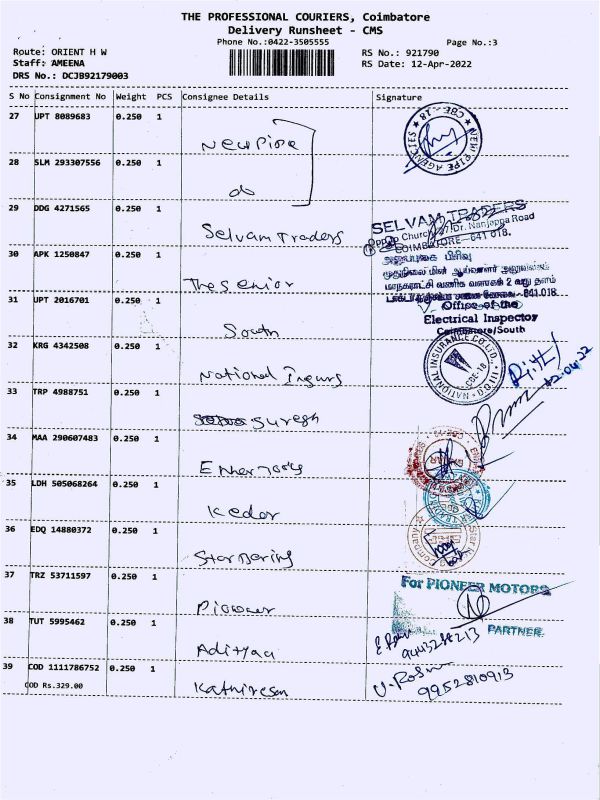 THE PROFESSIONAL COURIERS, Coimbatore
Delivery Runsheet - CMS
Phone No.:0422-3505555
Page No.:3
Route: ORIENT H W
RS No.: 921790
Staff: AMEENA
RS Date: 12-Apr-2022
DRS No.: DCJB92179003
S No Consignment No Weight PCS Consignee Details Signature
27 UPT 8089683 0.250 1
CBE - 18
NEW PIPE AGENCIES
28 SLM 293307556 0.250 1
do
29 DDG 4271565 0.250 1
Selvam Traders
SELVAM TRADERS
Church Dr. Nanjappa Road
COIMBATORE - 641 018.
30 APK 1250847 0.250 1
The senior
31 UPT 2016701 0.250 1
South
Office of the
Electrical Inspector
Coimbatore/South
32 KRG 4342508 0.250 1
National Insurs
NATIONAL INSURANCE CO. LTD.
CBE-18
12.04.22
33 TRP 4988751 0.250 1
Suresh
34 MAA 290607483 0.250 1
35 LDH 505068264 0.250 1
Kedar
36 EDQ 14880372 0.250 1
Star Bering
37 TRZ 53711597 0.250 1
Pioneer
For PIONEER MOTORS
PARTNER.
38 TUT 5995462 0.250 1
Adityaa
9443284213
39 COD 1111786752 0.250 1
COD Rs.329.00
Kathiresan
9952810913